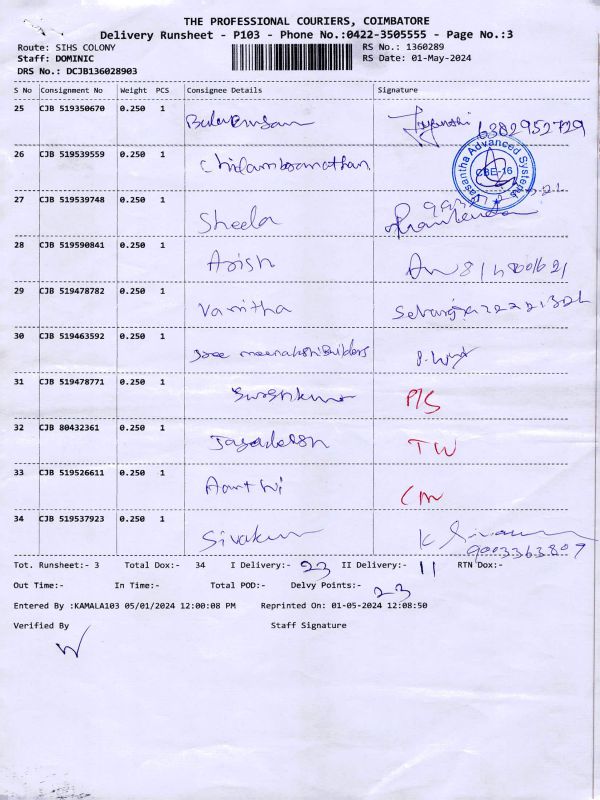 THE PROFESSIONAL COURIERS, COIMBATORE
Delivery Runsheet - P103 - Phone No.:0422-3505555 - Page No.:3
Route: SIHS COLONY RS No.: 1360289
Staff: DOMINIC RS Date: 01-May-2024
DRS No.: DCJB136028903
S No Consignment No Weight PCS Consignee Details Signature
25 CJB 519350670 0.250 1 6382952729
26 CJB 519539559 0.250 1 Chidambaranathan
Vasantha Advanced Systems
CBE-16
27 CJB 519539748 0.250 1 Sheela
28 CJB 519590841 0.250 1 Arish
29 CJB 519478782 0.250 1 Vanitha
30 CJB 519463592 0.250 1 Sree meenakshi Builders
31 CJB 519478771 0.250 1 P/S
32 CJB 80432361 0.250 1 TW
33 CJB 519526611 0.250 1 Aarthi
34 CJB 519537923 0.250 1 Sivakum
9003363807
Tot. Runsheet:- 3 Total Dox:- 34 I Delivery:- 23 II Delivery:- 11 RTN Dox:-
Out Time:- In Time:- Total POD:- Delvy Points:- 23
Entered By :KAMALA103 05/01/2024 12:00:08 PM Reprinted On: 01-05-2024 12:08:50
Verified By Staff Signature